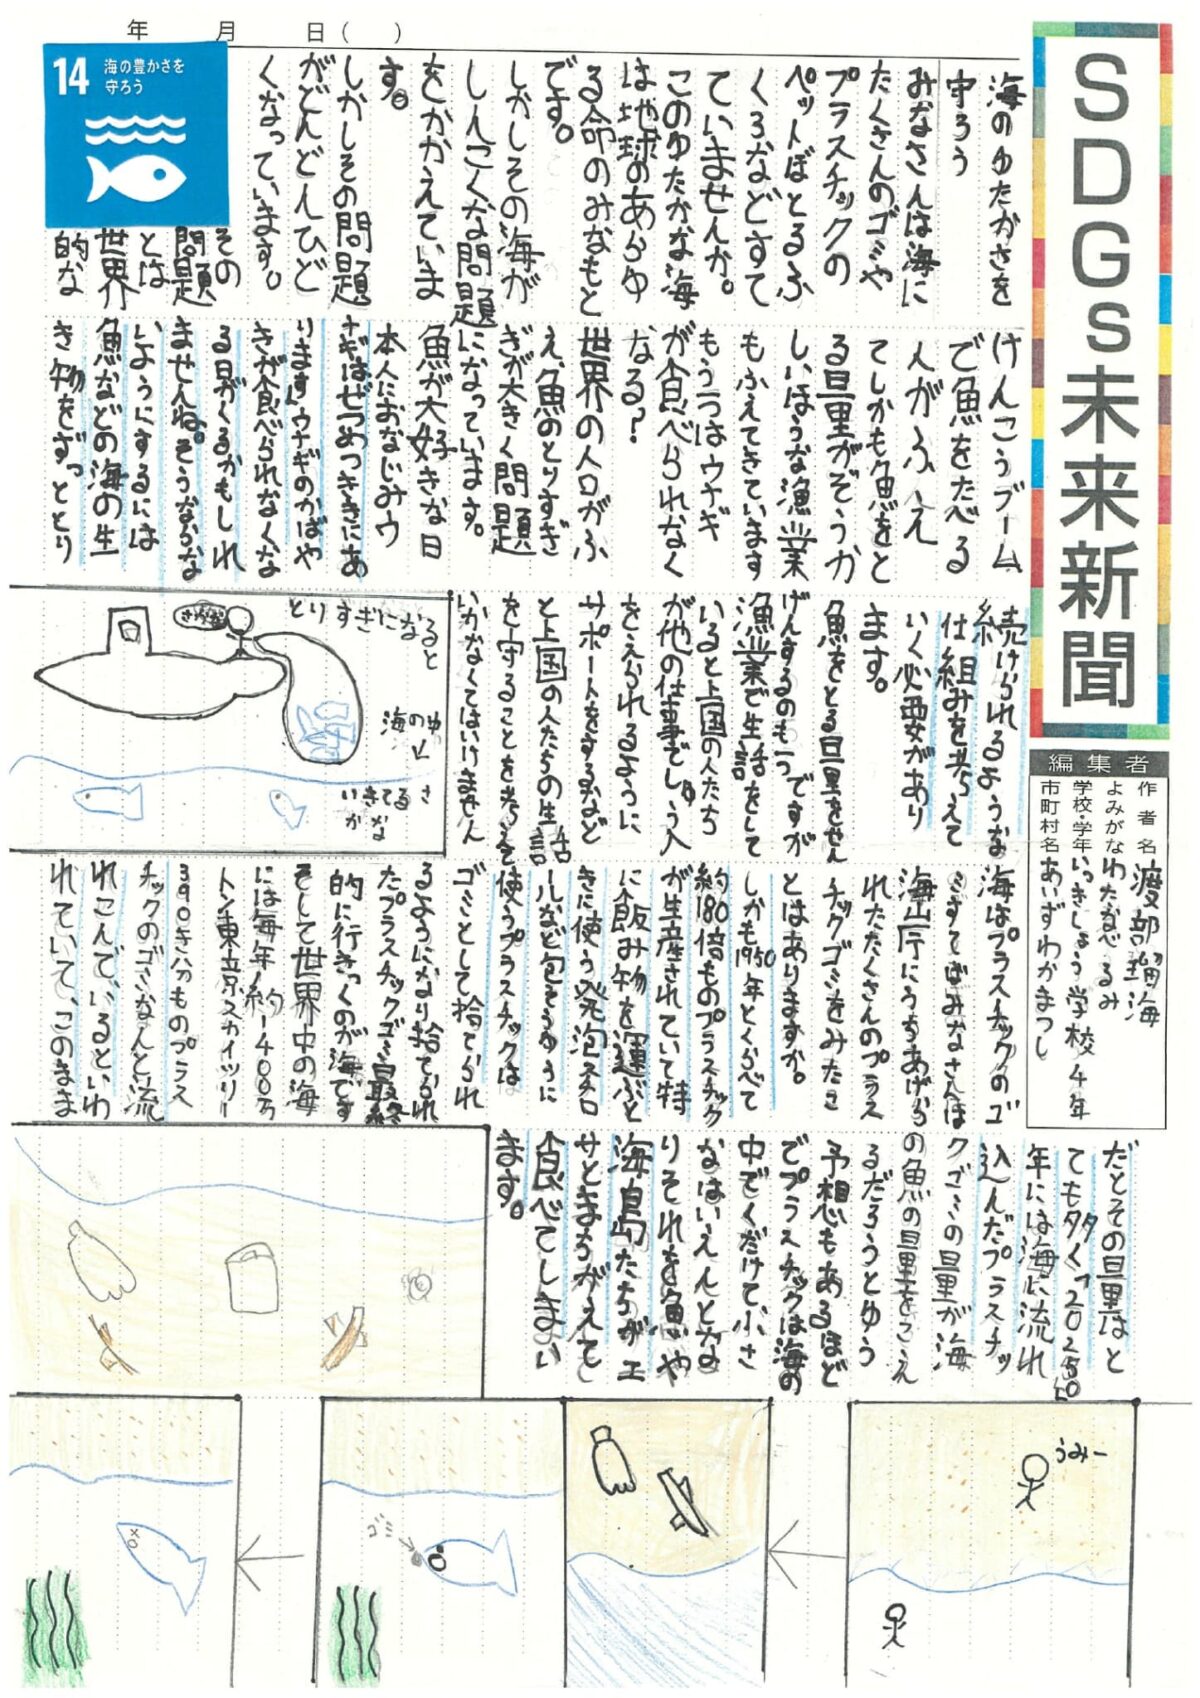 年 月 日( )
SDGs未来新聞
編集者
作者名 渡部瑠海
よみがな わたなべるみ
学校・学年 いっきしょう学校4年
市町村名 あいずわかまつし
14 海の豊かさを
守ろう
海のゆたかさを
守ろう
みなさんは海に
たくさんのゴミや
プラスチックの
ペットぼとるふ
くろなどすて
ていませんか。
このゆたかな海
は地球のあらゆ
る命のみなもと
です。
しかしその海が
しんこくな問題
をかかえていま
す。
しかしその問題
がどんどんひど
くなっています。
その
問題
とは
世界
的な
けんこうブーム
で魚をたべる
人がふえ
てしかも魚をと
る量がぞうか
しいほうな漁業
もふえてきています
もう一つはウナギ
が食べられなく
なる?
世界の人口がふ
え、魚のとりすぎ
ぎが大きく問題
になっています。
魚が大好きな日
本人におなじみウ
ナギはぜつめつききにあ
ります。ウナギのかばや
きが食べられなくな
る日がくるかもしれ
ませんね。そうならな
いようにするには
魚などの海の生
き物をずっととり
続けられるような
仕組みを考えて
いく必要があり
ます。
魚をとる量をせん
げんするのも一つですが
漁業で生活をして
いると上国の人たち
が他の仕事でしゅう入
をえられるように
サポートをするなど
と上国の人たちの生活
を守ることを考えて
いかなくてはいけません
とりすぎになると
さかな
海のゆ
いきてるさ
かな
海はプラスチックのゴ
ミすてばみなさんは
海岸にうちあげら
れたたくさんのプラス
チックゴミをみたこ
とはありますか。
しかも1950年とくらべて
約180倍ものプラスチック
が生産されていて特
に飲み物を運ぶと
きに使う発泡スチロ
ールなど包そうゆうに
使うプラスチックは
ゴミとして捨てられ
るようになり捨てられ
たプラスチックゴミ最終
的に行きつくのが海です
そして世界中の海
には毎年約1400万
トン東京スカイツリー
390きぶんものプラス
チックのゴミなんと流
れこんでいるといわ
れていて、このまま
だとその量はと
ても多く、2050
年には海に流れ
込んだプラスチッ
クゴミの量が海
の魚の量をこえ
るだろうとゆう
予想もあるほど
でプラスチックは海の
中でくだけて小さ
なはへんとな
りそれを魚や
海鳥たちがエ
サとまちがえて
食べてしまい
ます。
うみー
ゴミ